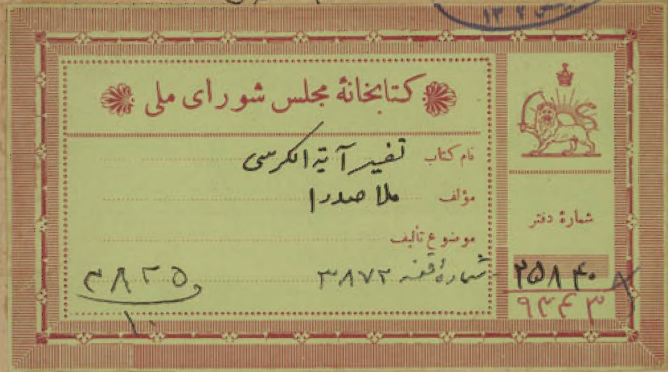 ۱۳۰۲
کتابخانهٔ مجلس شورای ملی
نام کتاب تفسیر آیة الکرسی
مؤلف ملا صدرا
موضوع تألیف
شمارهٔ قفسه ۳۸۷۲
شمارهٔ دفتر
۲۵۸۴۰
۹۴۴۳
۳۸۲۵
۱۰